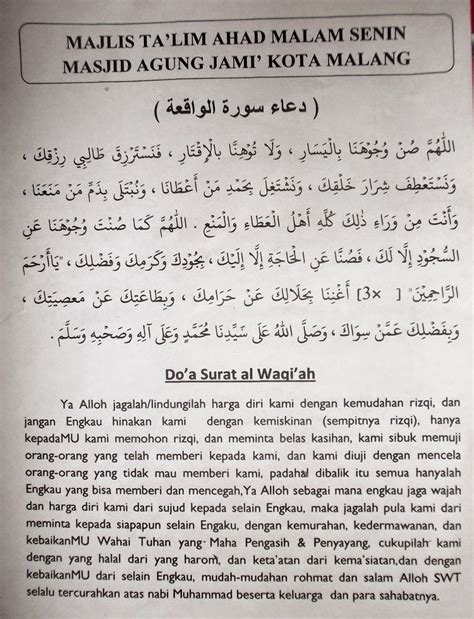 MAJLIS TA'LIM AHAD MALAM SENIN
MASJID AGUNG JAMI' KOTA MALANG
( دعاء سورة الواقعة )
اللَّهُمَّ صُنْ وُجُوْهَنَا بِالْيَسَارِ ، وَلَا تُوْهِنَّا بِالْإِقْتَارِ ، فَنَسْتَرْزِقَ طَالِبِي رِزْقِكَ ،
وَنَسْتَعْطِفَ شِرَارَ خَلْقِكَ ، وَنَشْتَغِلَ بِحَمْدِ مَنْ أَعْطَانَا ، وَنُبْتَلَى بِذَمِّ مَنْ مَنَعَنَا ،
وَأَنْتَ مِنْ وَرَاءِ ذٰلِكَ كُلِّهِ أَهْلُ الْعَطَاءِ وَالْمَنْعِ . اللَّهُمَّ كَمَا صُنْتَ وُجُوْهَنَا عَنِ
السُّجُوْدِ إِلَّا لَكَ ، فَصُنَّا عَنِ الْحَاجَةِ إِلَّا إِلَيْكَ ، بِجُوْدِكَ وَكَرَمِكَ وَفَضْلِكَ ، "يَاأَرْحَمَ
الرَّاحِمِيْنَ" [ 3x] أَغْنِنَا بِحَلَالِكَ عَنْ حَرَامِكَ ، وَبِطَاعَتِكَ عَنْ مَعْصِيَتِكَ ،
وَبِفَضْلِكَ عَمَّنْ سِوَاكَ ، وَصَلَّى اللهُ عَلَى سَيِّدِنَا مُحَمَّدٍ وَعَلَى آلِهِ وَصَحْبِهِ وَسَلَّمَ .
Do'a Surat al Waqi'ah
Ya Alloh jagalah/lindungilah harga diri kami dengan kemudahan rizqi, dan
jangan Engkau hinakan kami dengan kemiskinan (sempitnya rizqi), hanya
kepadaMU kami memohon rizqi, dan meminta belas kasihan, kami sibuk memuji
orang-orang yang telah memberi kepada kami, dan kami diuji dengan mencela
orang-orang yang tidak mau memberi kami, padahal dibalik itu semua hanyalah
Engkau yang bisa memberi dan mencegah,Ya Alloh sebagai mana engkau jaga wajah
dan harga diri kami dari sujud kepada selain Engkau, maka jagalah pula kami dari
meminta kepada siapapun selain Engaku, dengan kemurahan, kedermawanan, dan
kebaikanMU Wahai Tuhan yang Maha Pengasih & Penyayang, cukupilah kami
dengan yang halal dari yang harom, dan keta'atan dari kema'siatan,dan dengan
kebaikanMU dari selain Engkau, mudah-mudahan rohmat dan salam Alloh SWT
selalu tercurahkan atas nabi Muhammad beserta keluarga dan para sahabatnya.